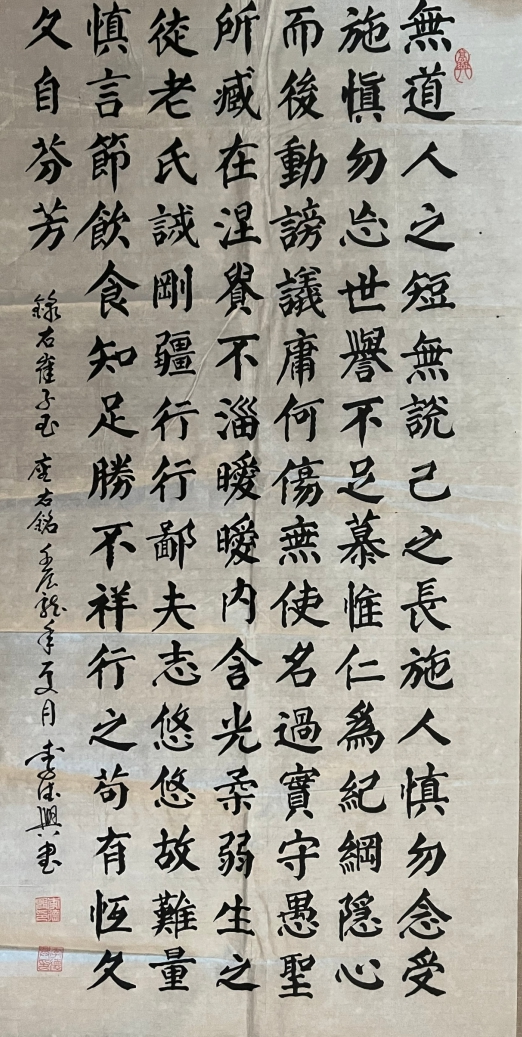 無道人之短無說己之長施人慎勿念受
施慎勿忘世譽不足慕惟仁爲紀綱隱心
而後動謗議庸何傷無使名過實守愚聖
所臧在涅貴不淄曖曖内含光柔弱生之
徒老氏誡剛疆行行鄙夫志悠悠故難量
慎言節飲食知足勝不祥行之苟有恆久
久自芬芳
錄右崔子玉座右銘壬辰龍年夏月李德興書